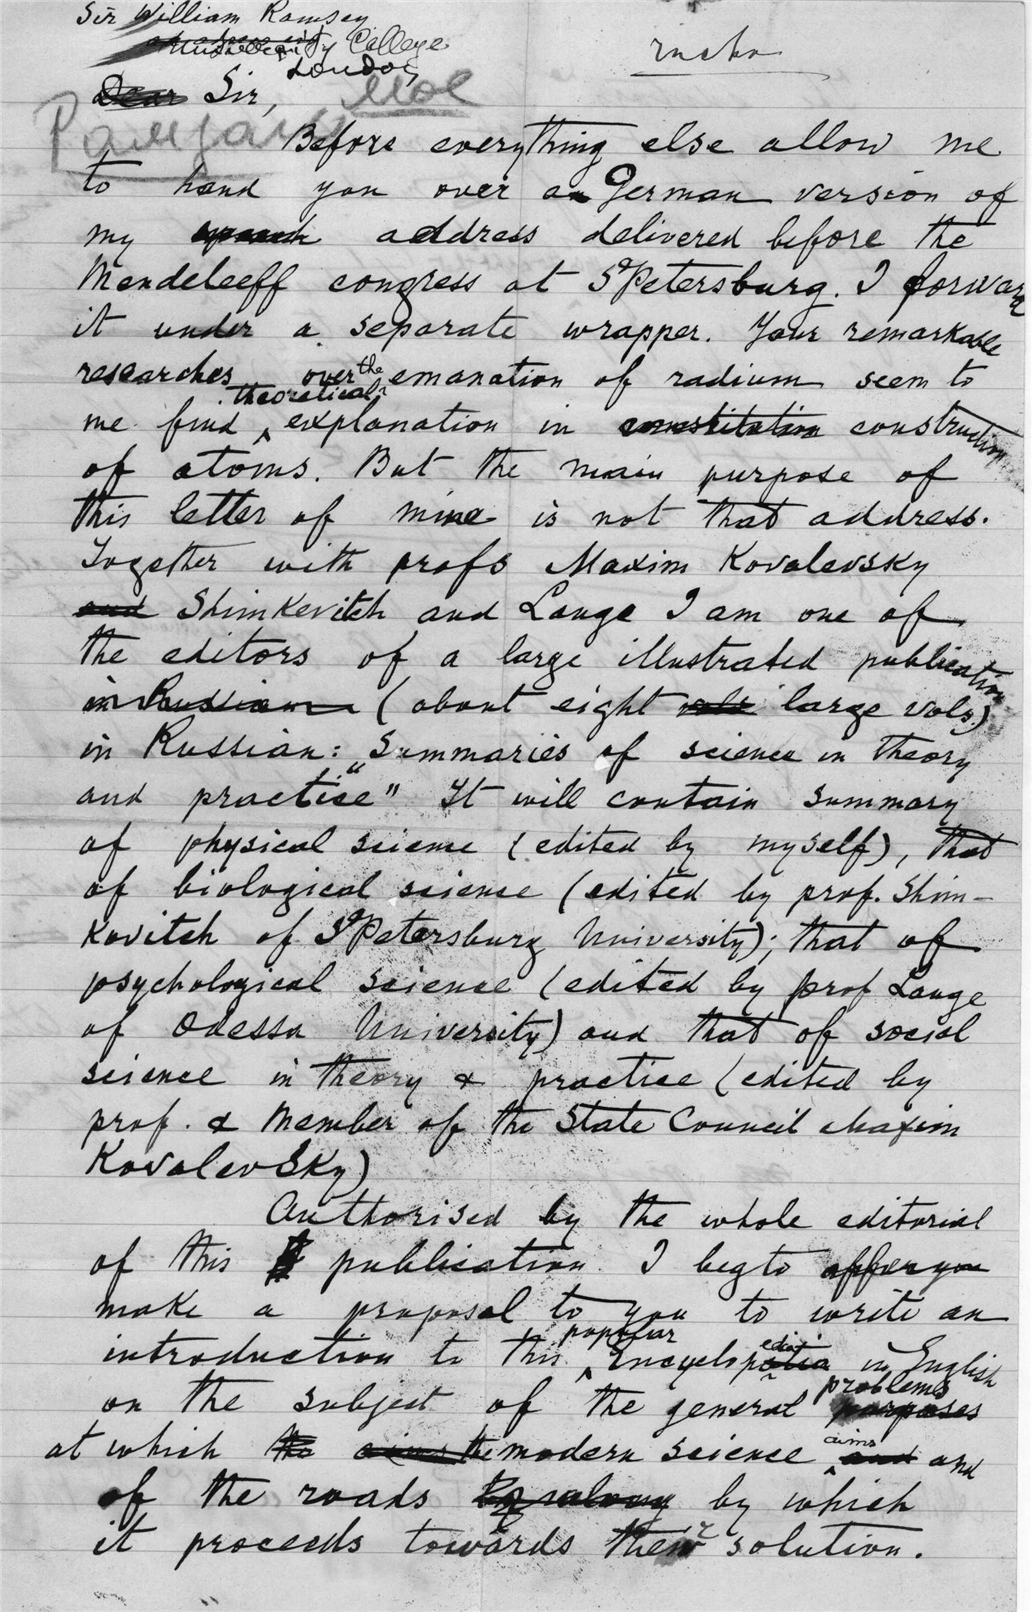 Sir William Ramsey
University College
London
Dear Sir,
Рамзаю
Before everything else allow me
to hand you over a German version of
my speech address delivered before the
Mendeleeff congress at St Petersburg. I forward
it under a separate wrapper. Your remarkable
researches over the emanation of radium seem to
me find theoretical explanation in constitution construction
of atoms. But the main purpose of
this letter of mine is not that address.
Together with profs Maxim Kovalevsky
and Shimkevitch and Lange I am one of
the editors of a large illustrated publication
in Russian (about eight vols large vols)
in Russian: "Summaries of science in theory
and practise" It will contain summary
of physical science (edited by myself), that
of biological science (edited by prof. Shim-
kovitch of St Petersburg University); that of
psychological science (edited by prof Lange
of Odessa University) and that of social
science in theory & practice (edited by
prof. & Member of the State Council Maxim
Kovalevsky)
Authorised by the whole editorial
of this publication I beg to offer you
make a proposal to you to write an
introduction to this popular Encyclopedia in English
on the subject of the general problems purposes
at which the aims the modern science aims and and
of the roads by which
it proceeds towards their solution.